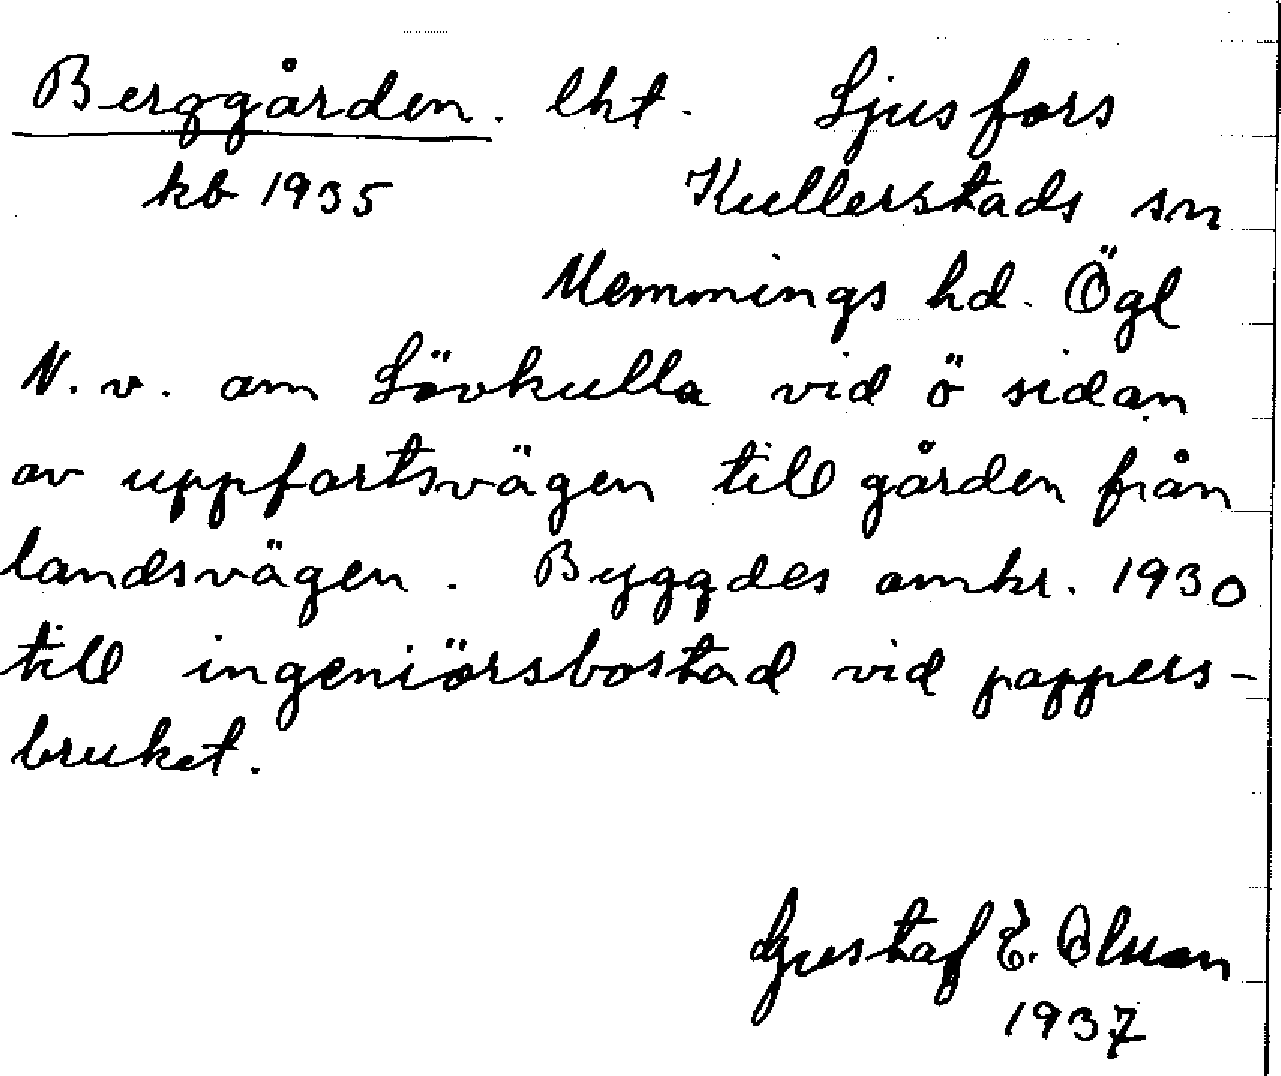 Berggården. lht. Ljusfors
kb 1935 Kullerstads sn
Memmings hd. Ögl
N. v. om Lövkulla vid ö sidan
av uppfartsvägen till gården från
landsvägen. Byggdes omkr. 1930
till ingeniörsbostad vid pappers-
bruket.
Gustaf E. Olsson
1937